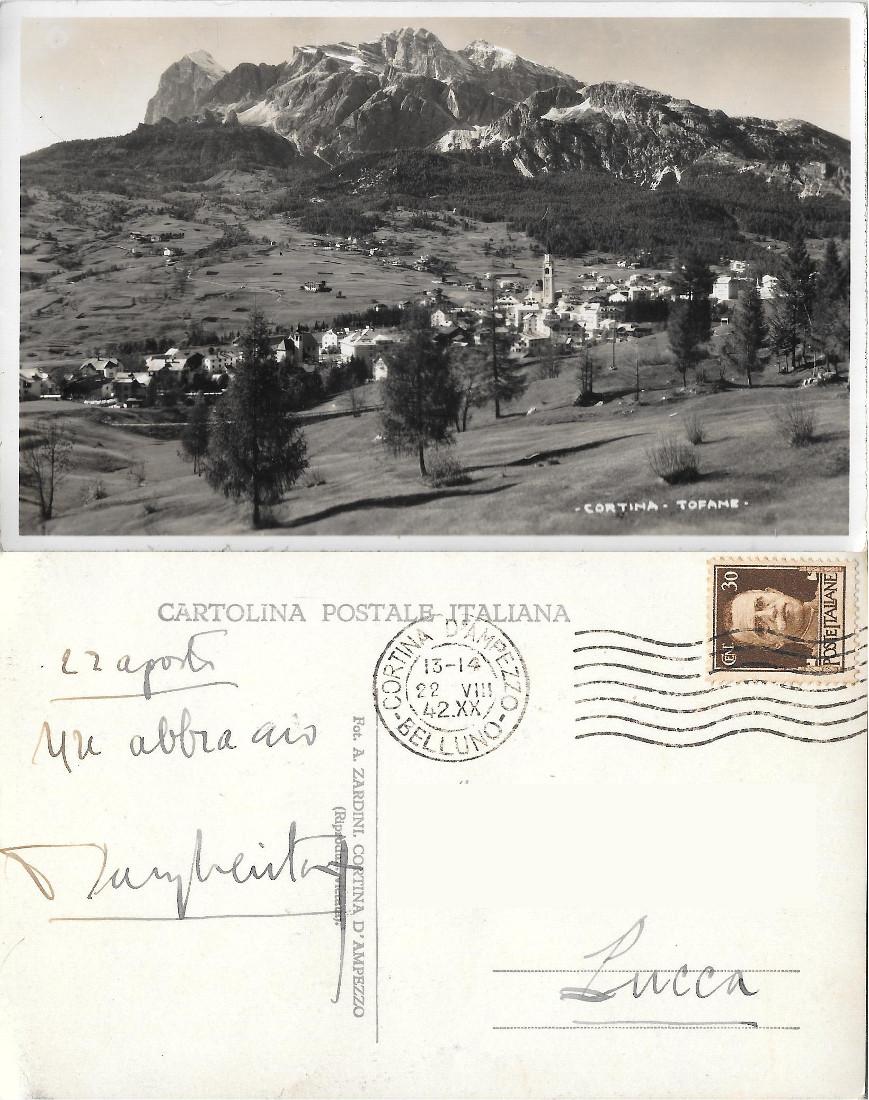 - CORTINA - TOFANE -
CARTOLINA POSTALE ITALIANA
CENT 30
POSTE ITALIANE
CORTINA D'AMPEZZO
13-14
22 VIII
42.XX
- BELLUNO -
22 agosto
Un abbraccio
Margherita
Fot. A. ZARDINI. CORTINA D'AMPEZZO
Lucca